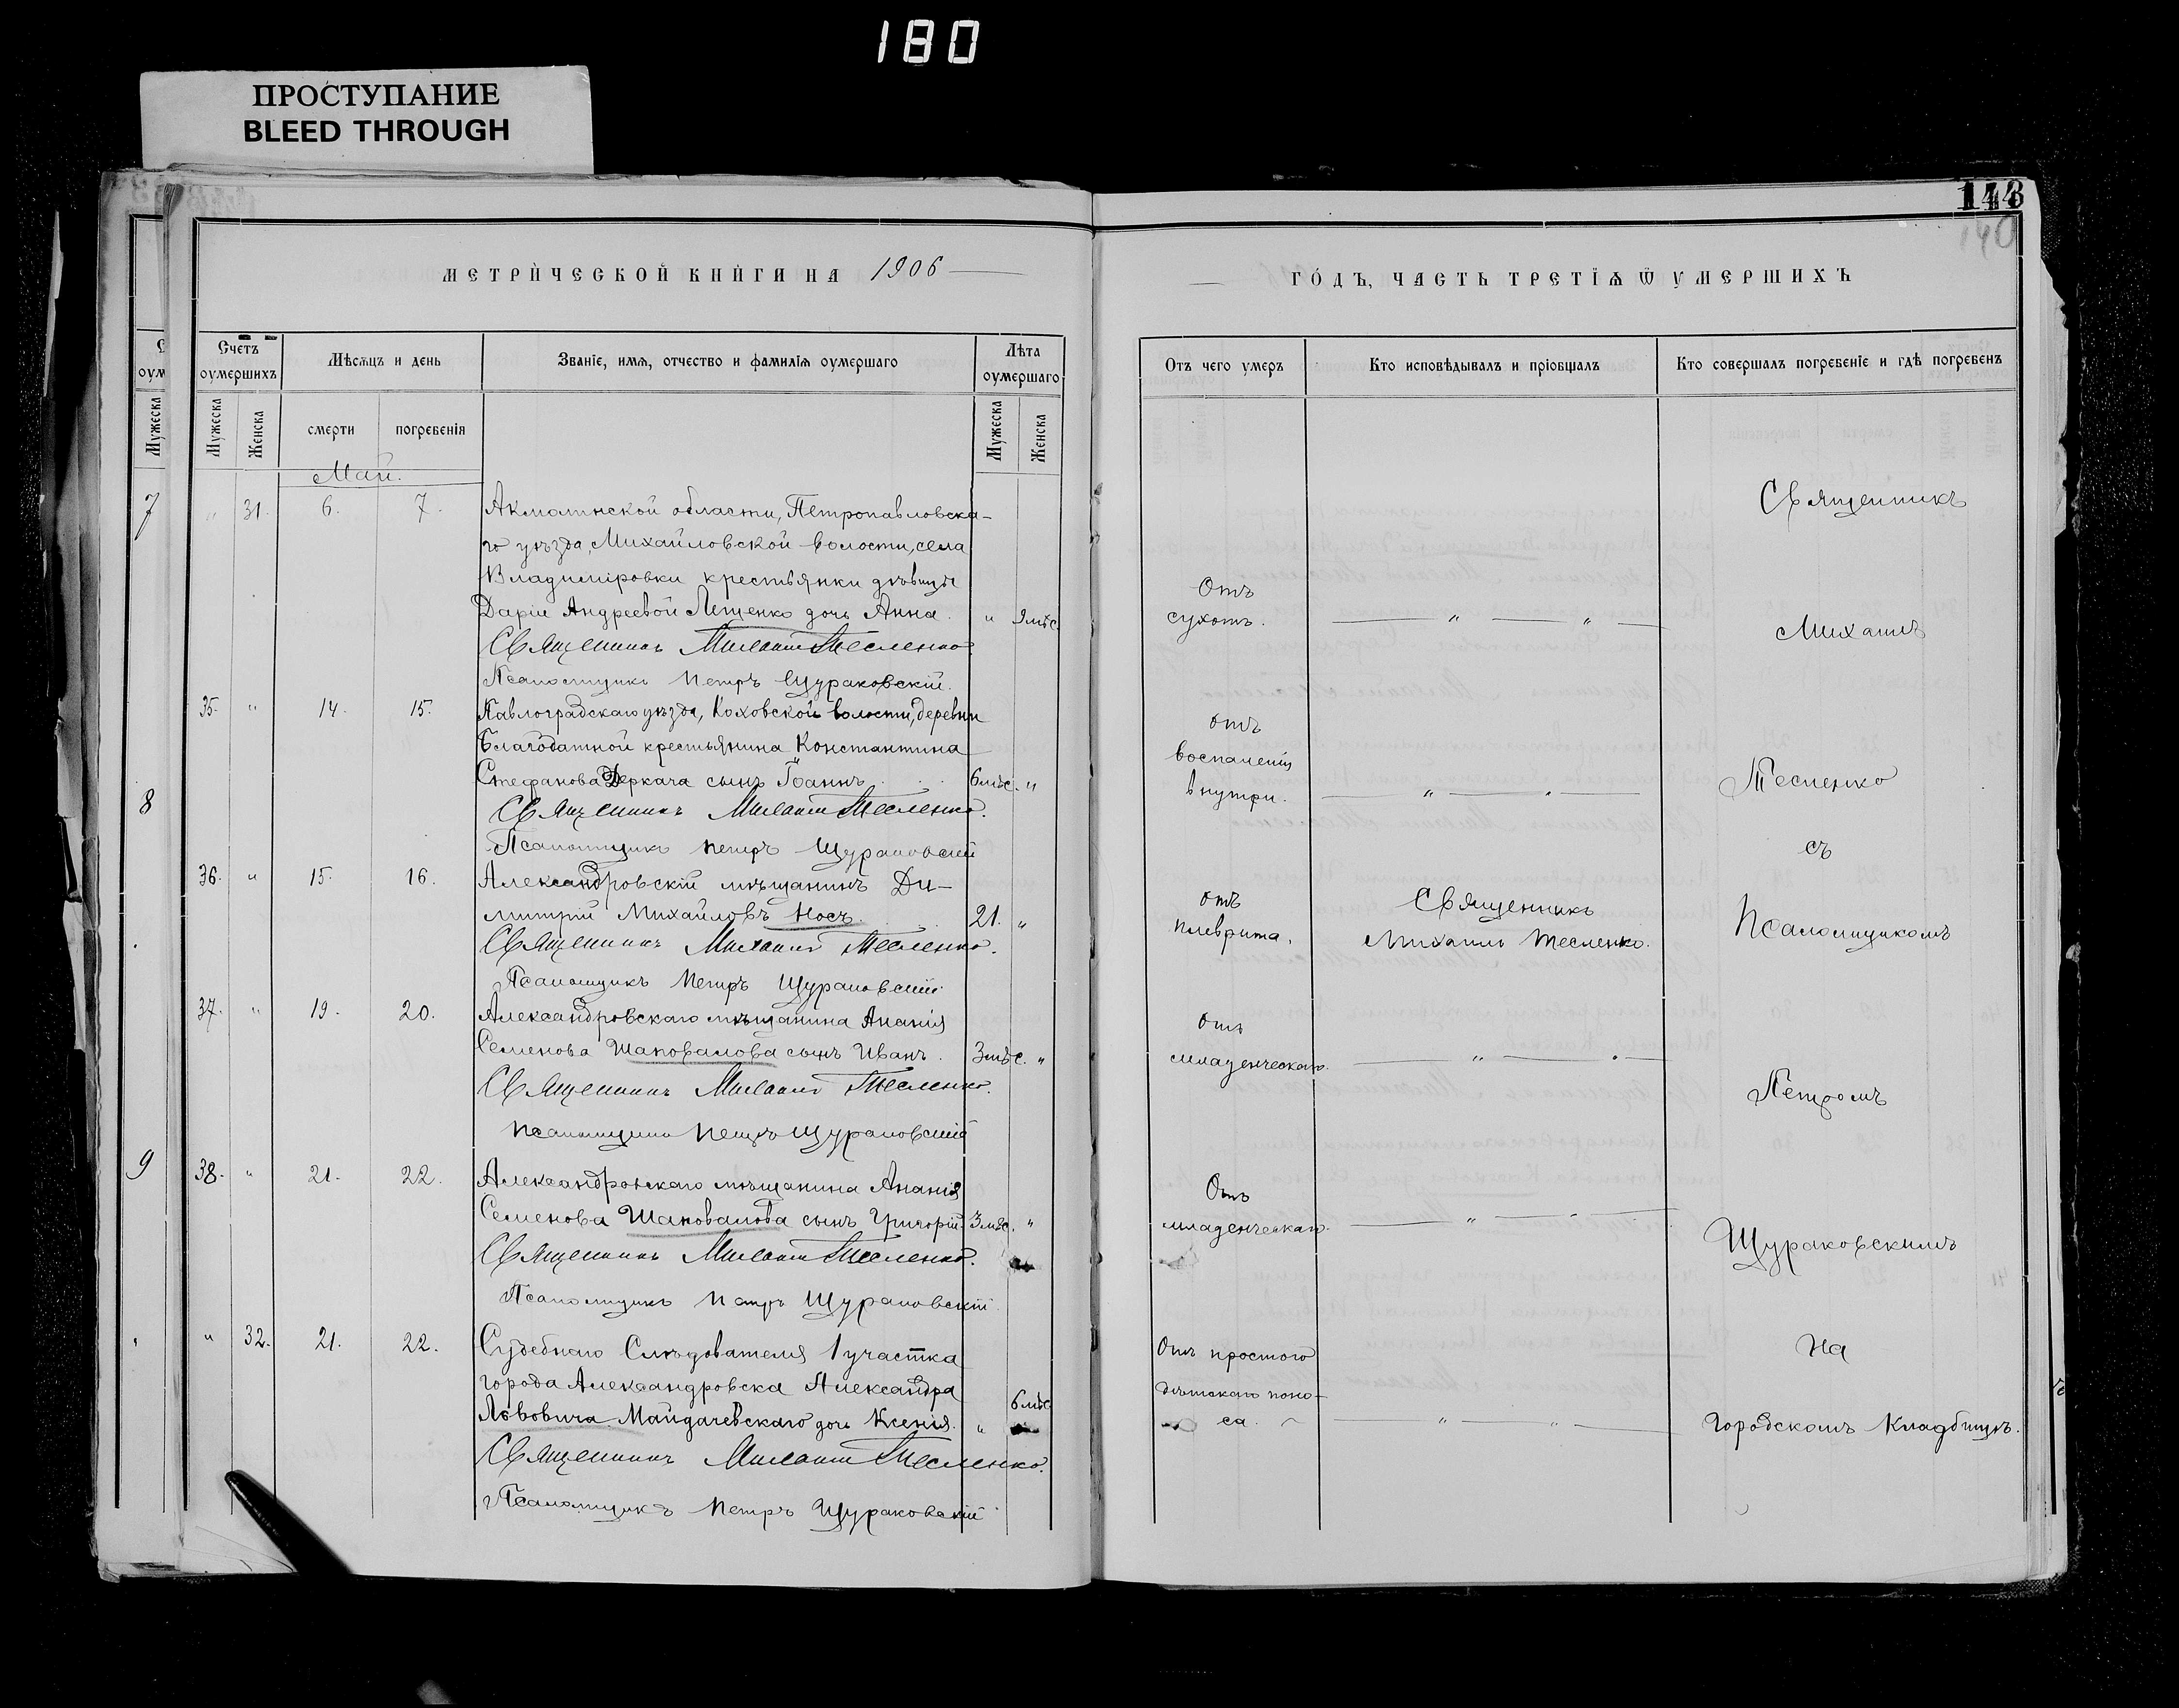 180
ПРОСТУПАНИЕ
BLEED THROUGH
143
140
МЕТРИ́ЧЕСКОЙ КНИ́ГИ НА 1906
ГО́ДЪ, ЧАСТЬ ТРЕТІѦ Ѿ УМЕРШИХЪ
Счетъ оумершихъ
Мѣсѧцъ и день
Званіе, имѧ, отчество и фамиліѧ оумершаго
Лѣта оумершаго
Отъ чего умеръ
Кто исповѣдывалъ и пріобщалъ
Кто совершалъ погребеніе и гдѣ погребенъ
Мужеска
Мужеска
Женска
смерти
погребенія
Мужеска
Женска
Май.
7
" 31. 6. 7. Акмолинской области, Петропавловска-
го уѣзда, Михайловской волости, села
Владиміровки крестьянки дѣвицы
Даріи Андреевой Лещенко дочь Анна. " 9 мѣс.
Отъ
сухотъ. " "
Священникъ Михаилъ Тесленко.
Псаломщикъ Петръ Щураковскій.
35. " 14. 15. Павлоградскаго уѣзда, Коховской волости, деревни
Благодатной крестьянина Константина
Стефанова Деркача сынъ Іоаннъ. 6 мѣс. "
отъ
воспаленія
внутри. " "
8
Священникъ Михаилъ Тесленко.
Псаломщикъ Петръ Щураковскій
36. " 15. 16. Александровскій мѣщанинъ Ди-
митрій Михайловъ Носъ. 21. "
отъ
плеврита.
Священникъ
Михаилъ Тесленко.
Священникъ Михаилъ Тесленко.
Псаломщикъ Петръ Щураковскій
37. " 19. 20. Александровскаго мѣщанина Ананія
Семенова Шаповалова сынъ Иванъ. 3 мѣс. "
Отъ
младенческаго. " "
Священникъ Михаилъ Тесленко.
Псаломщикъ Петръ Щураковскій
9
38. " 21. 22. Александровскаго мѣщанина Ананія
Семенова Шаповалова сынъ Григорій. 3 мѣс. "
Отъ
младенческаго. " "
Священникъ Михаилъ Тесленко.
Псаломщикъ Петръ Щураковскій
" 32. 21. 22. Судебнаго Слѣдователя 1 участка
города Александровска Александра
Львовича Майдачевскаго дочь Ксенія. " 6 мѣс
Отъ простого
дѣтскаго поно-
са. " "
Священникъ Михаилъ Тесленко.
Псаломщикъ Петръ Щураковскій
Священникъ
Михаилъ
Тесленко
съ
Псаломщикомъ
Петромъ
Щураковскимъ
на
городскомъ кладбищѣ.